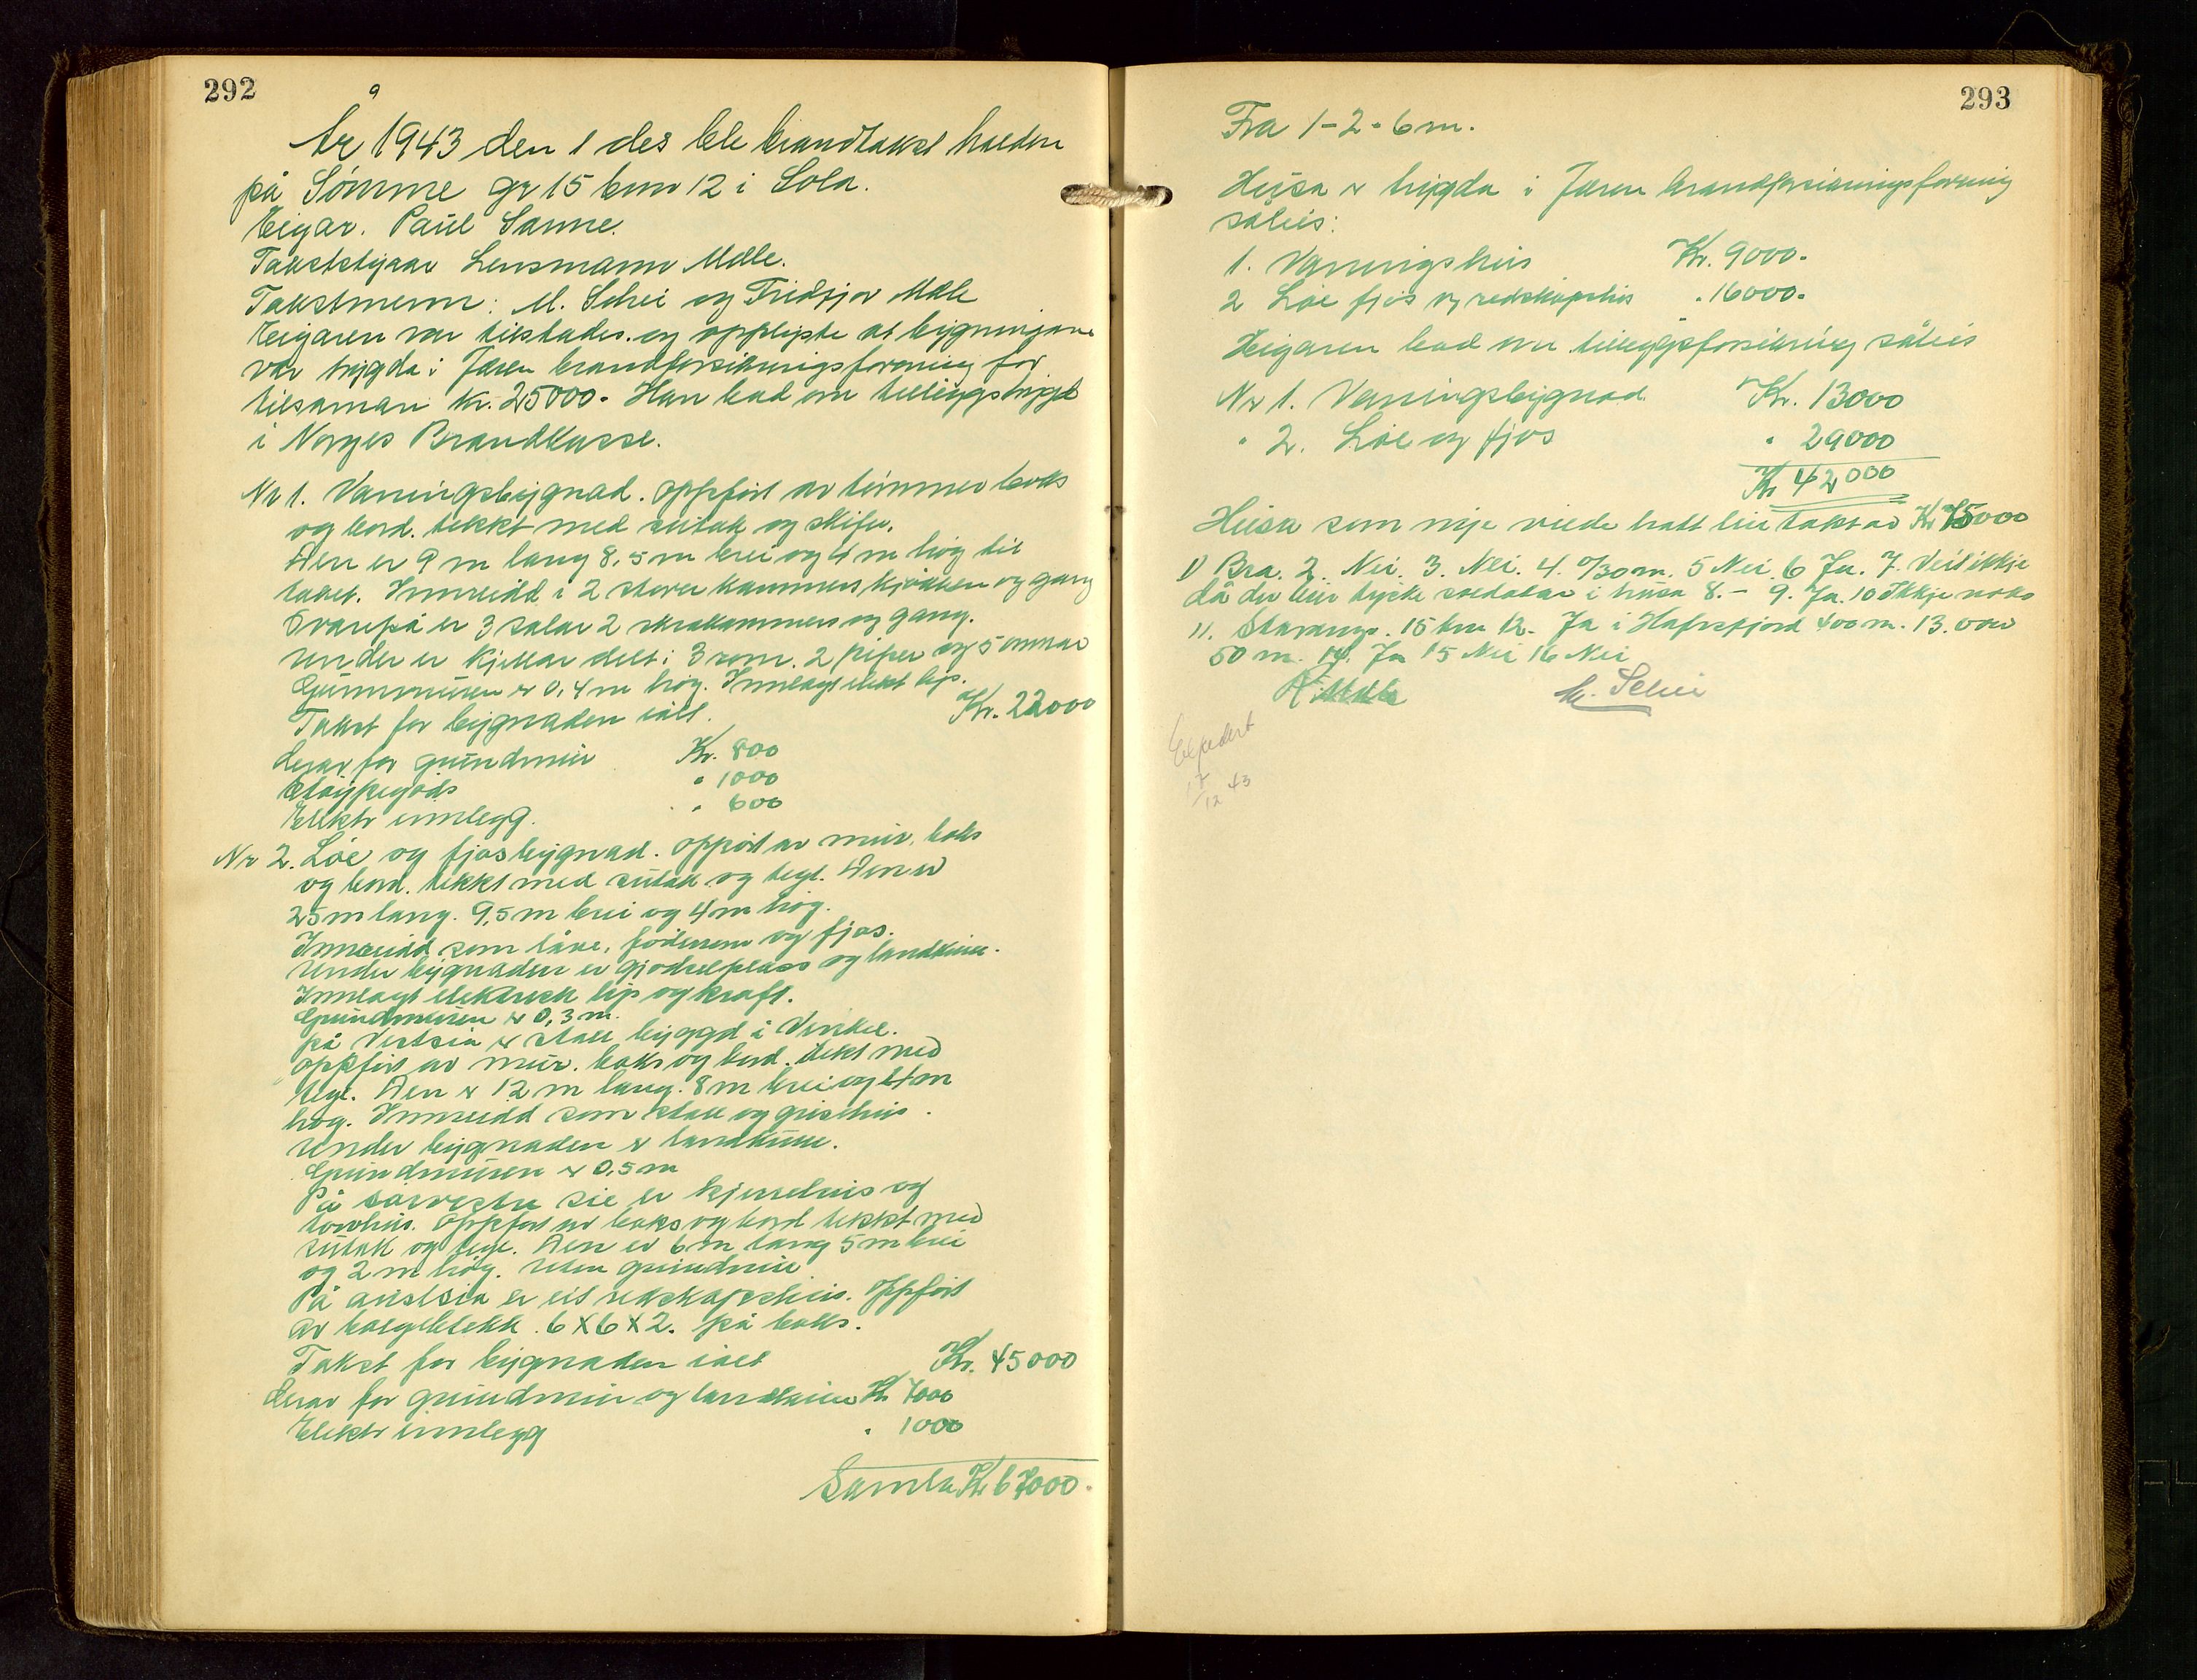 292
År 1943 den 1 des ble brandtakst halden
på Sømme gr 15 bnr 12 i Sola.
Eigar. Paul Sanne.
Takststyrar Lensmann Melle.
Takstmenn: M. Schei og Fridtjov Mæle
Eigaren var tilstades. og opplyste at bygningane
var trygda i Jæren brandforsikringsforening for
tilsaman kr. 25000. Han bad om tilleggstrygd
i Norges Brandkasse.
Nr 1. Vaningsbygnad. oppført av timmer boks
og bord. tekkt med sutak og skifer.
Den er 9 m lang 8,5 m brei og 4 m høg til
taket. Innreidd i 2 stover kammers kjøkken og gang
Ovanpå er 3 salar 2 skrakammers og gang.
Under er kjellar delt i 3 rom. 2 piper og 5 omnar
Grunnmuren er 0,4 m høg. Innlagt elekt ljos.
Takst for bygnaden ialt. Kr. 22000
Herav for grundmur Kr. 800
Støypegods " 1000
Elektr innlegg. " 600
Nr 2. Løe og fjosbygnad. oppført av mur, boks
og bord. tekkt med sutak og tegl. Den er
25 m lang. 9,5 m brei og 4 m høg.
Innreidd som låve, foderom og fjos.
Under bygnaden er gjødselplass og landkum.
Innlagt elektrisk ljos og kraft.
Grundmuren er 0,3 m.
på Vestsia er stall bygd i Vinkel.
oppført av mur. boks og bord. tekt med
tegl. Den er 12 m lang. 8 m brei og 4 m
høg. Innreidd som stall og grisehus.
Under bygnaden er landkum.
Grundmuren er 0,5 m
På sørvestre sie er kjerrehus og
torvhus. Oppført av boks og bord tekkt med
sutak og tegl. Den er 6 m lang 5 m brei
og 2 m høg. Uten grundmur
På austsia er eit redskapshus. Oppført
av bølgeblekk. 6 X 6 X 2. på boks.
Takst for bygnaden ialt Kr. 45000
Herav for grundmur og landkum Kr 7000
Elektr innlegg " 1000
Samla Kr 67000.
293
Fra 1-2 - 6 m.
Husa er trygda i Jæren brandforsikringsforening
såleis:
1. Vaningshus Kr. 9000.
2 Løe fjos og redskapshus " 16000.
Eigaren bad om tilleggsforsikring såleis
Nr 1. Vaningsbygnad Kr. 13000
" 2. Løe og fjos " 29000
Kr 42000
Husa som nye ville hatt ein takst av Kr 75000
1) Bra. 2. Nei. 3. Nei. 4. 0/30 m. 5 Nei. 6 Ja. 7. Veit ikkje
då der bur tyske soldatar i husa 8. - 9. Ja. 10 Ikkje noko
11. Stavanger. 15 km 12. Ja i Hafrsfjord 400 m. 13. over
50 m. 14. Ja 15 Nei 16 Nei
M. Schei
Expedert
17/12 43